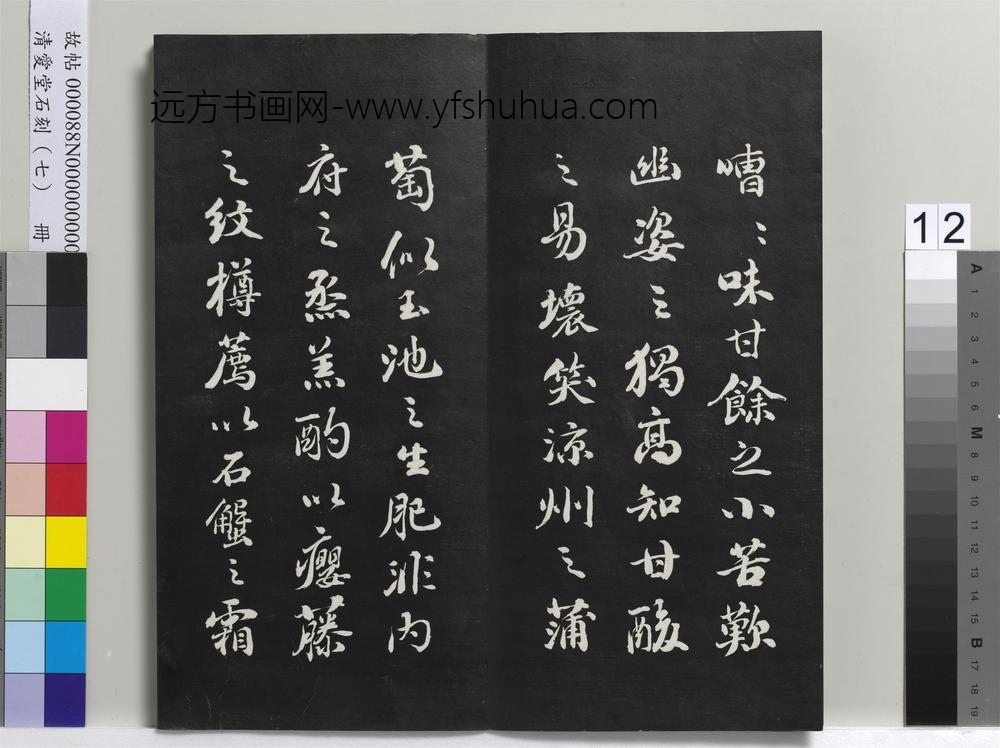 嘈〻味甘餘之小苦歎
幽姿之獨高知甘酸
之易壞笑涼州之蒲
萄似玉池之生肥非內
府之烝羔酌以癭藤
之紋樽薦以石蟹之霜
远方书画网-www.yfshuhua.com
故帖 000088N000000000
清愛堂石刻（七） 冊
12
A
1
2
3
4
5
6
M
8
9
10
11
12
13
14
15
B
17
18
19